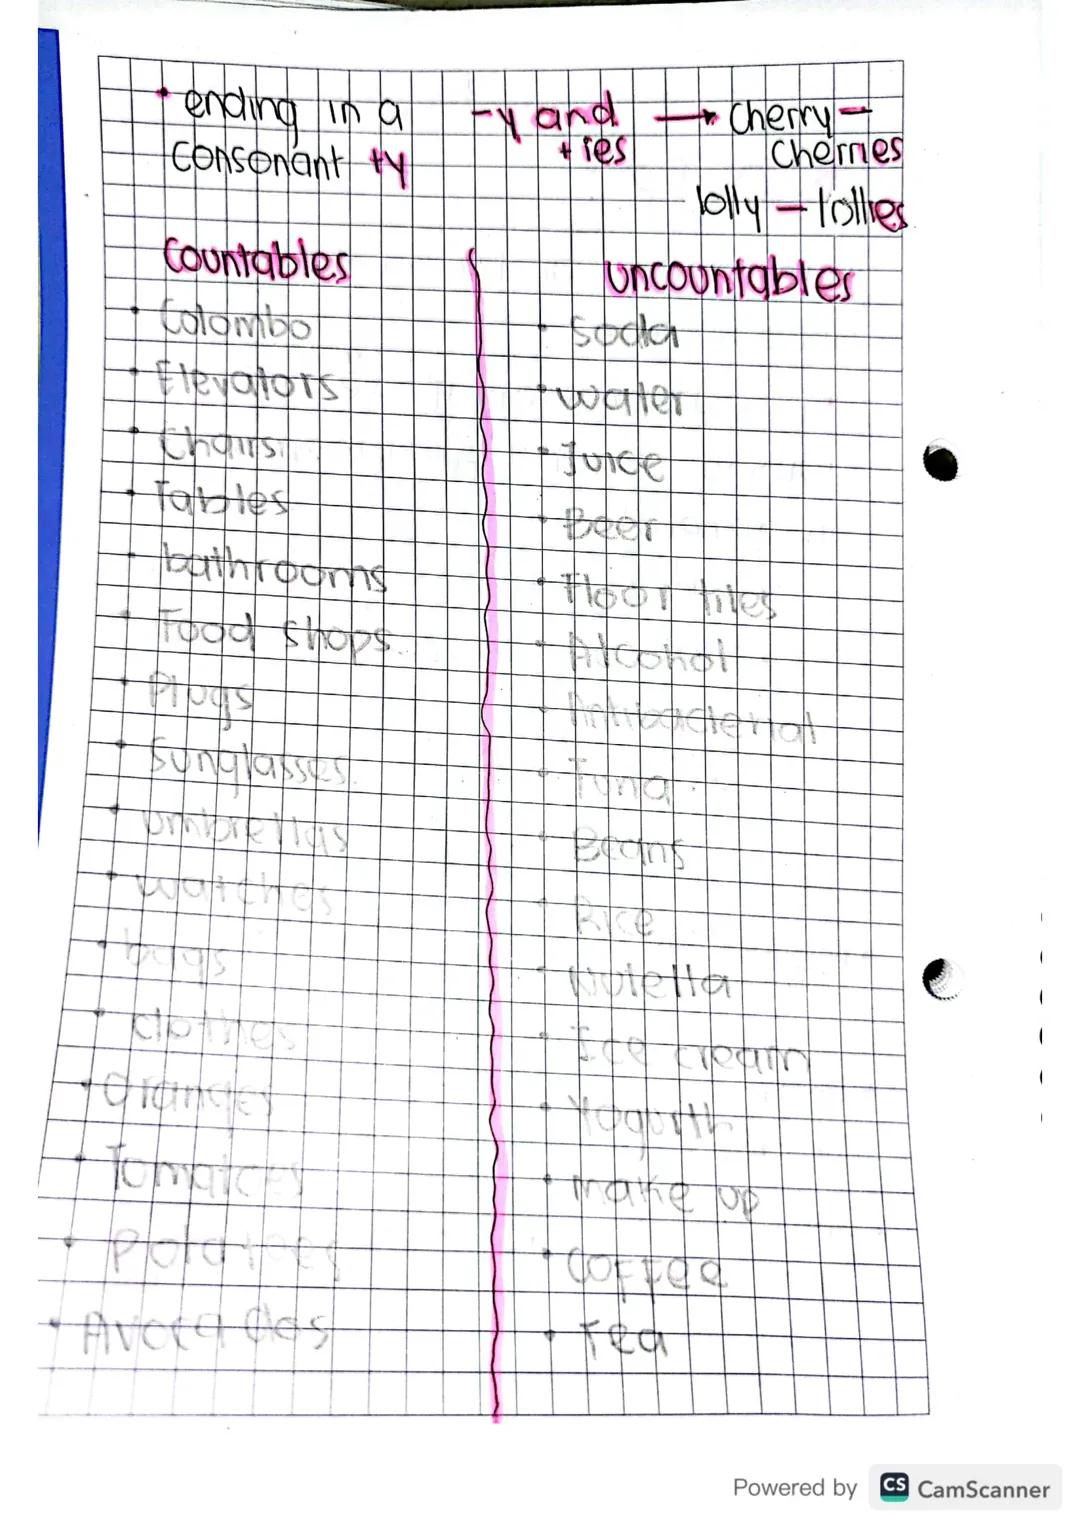 • ending in a -y and → cherry –
consonant +y + ies cherries
lolly – lollies
Countables uncountables
• Colombo • Soda
• Elevators • water
• Chairs • Juice
• Tables • Beer
• bathrooms • Floor tiles
• Food shops • Alcohol
• Plugs • Antibacterial
• Sunglasses • Tuna
• umbrellas • Beans
• watches • Rice
• bags • Nutella
• clothes • Ice cream
• oranges • Yogurth
• Tomatoes • make up
• Potatoes • Coffee
• Avocados • Tea
Powered by CS CamScanner